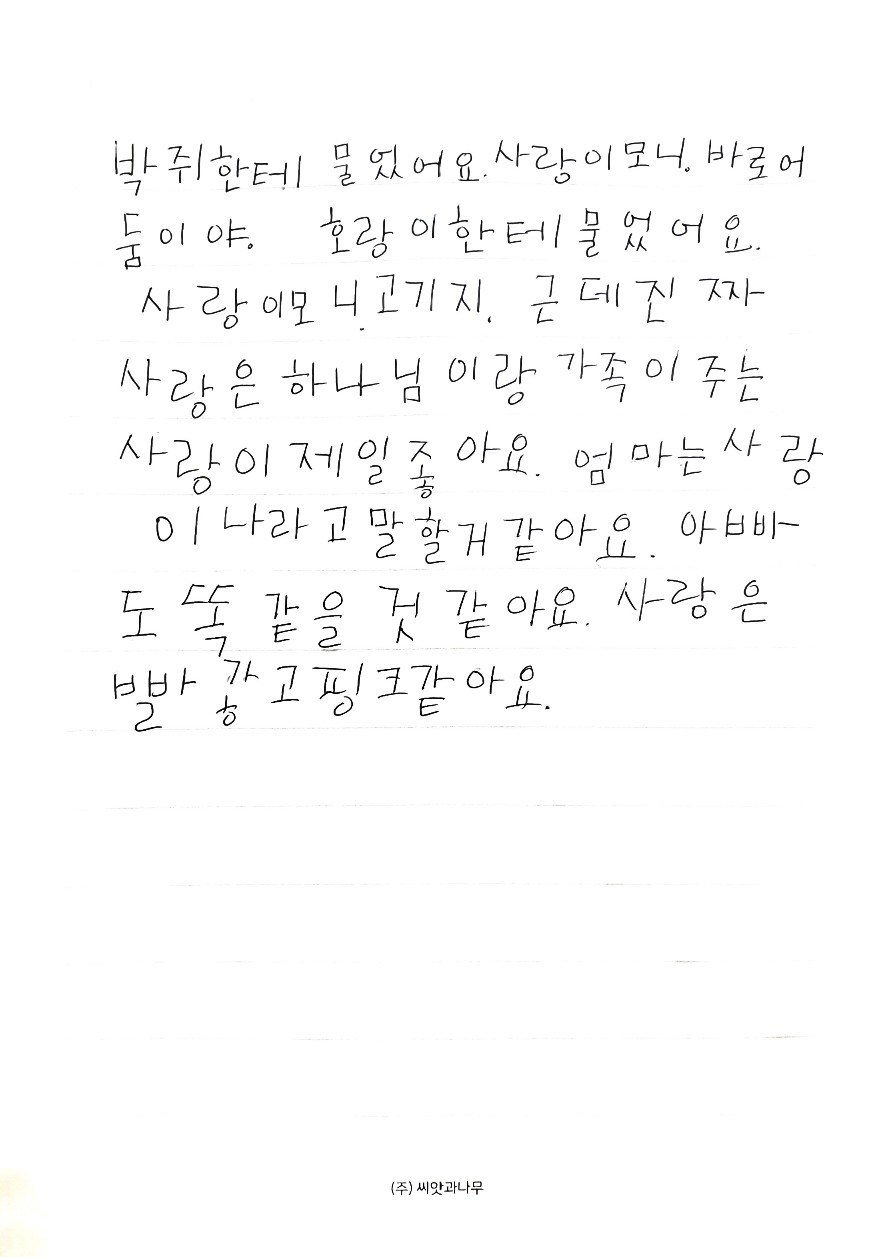 박쥐한테 물었어요. 사랑이모니. 바로어
둠이야. 호랑이한테 물었어요.
사랑이모니. 고기지. 근데진짜
사랑은 하나님이랑 가족이주는
사랑이 제일좋아요. 엄마는사랑
이나라고말할거같아요. 아빠
도똑같을것같아요. 사랑은
빨갛고핑크같아요.
(주) 씨앗과나무